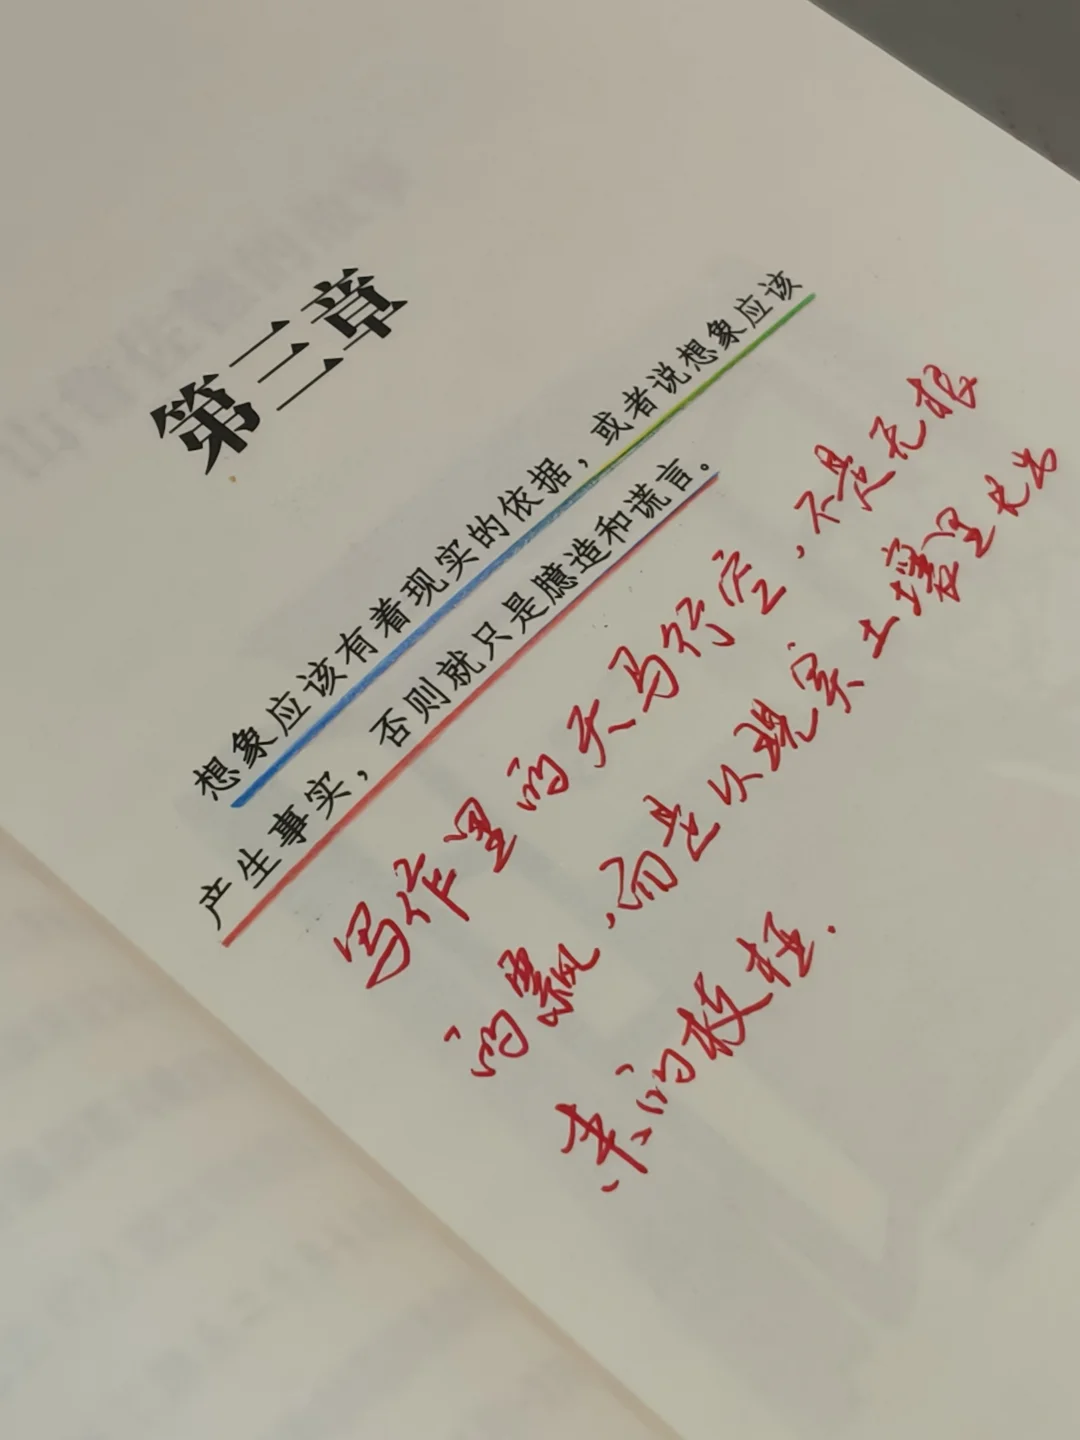 第三章
想象应该有着现实的依据，或者说想象应该
产生事实，否则就只是臆造和谎言。
写作里的天马行空，不是无根
的飘，而是以现实土壤里长出
来的枝桠.